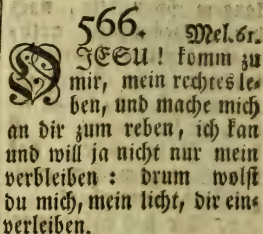 566. Mel. 61.
O JESU! komm zu
mir, mein rechtes le-
ben, und mache mich
an dir zum reben, ich kan
und will ja nicht nur mein
verbleiben: drum wolst
du mich, mein licht, dir ein-
verleiben.